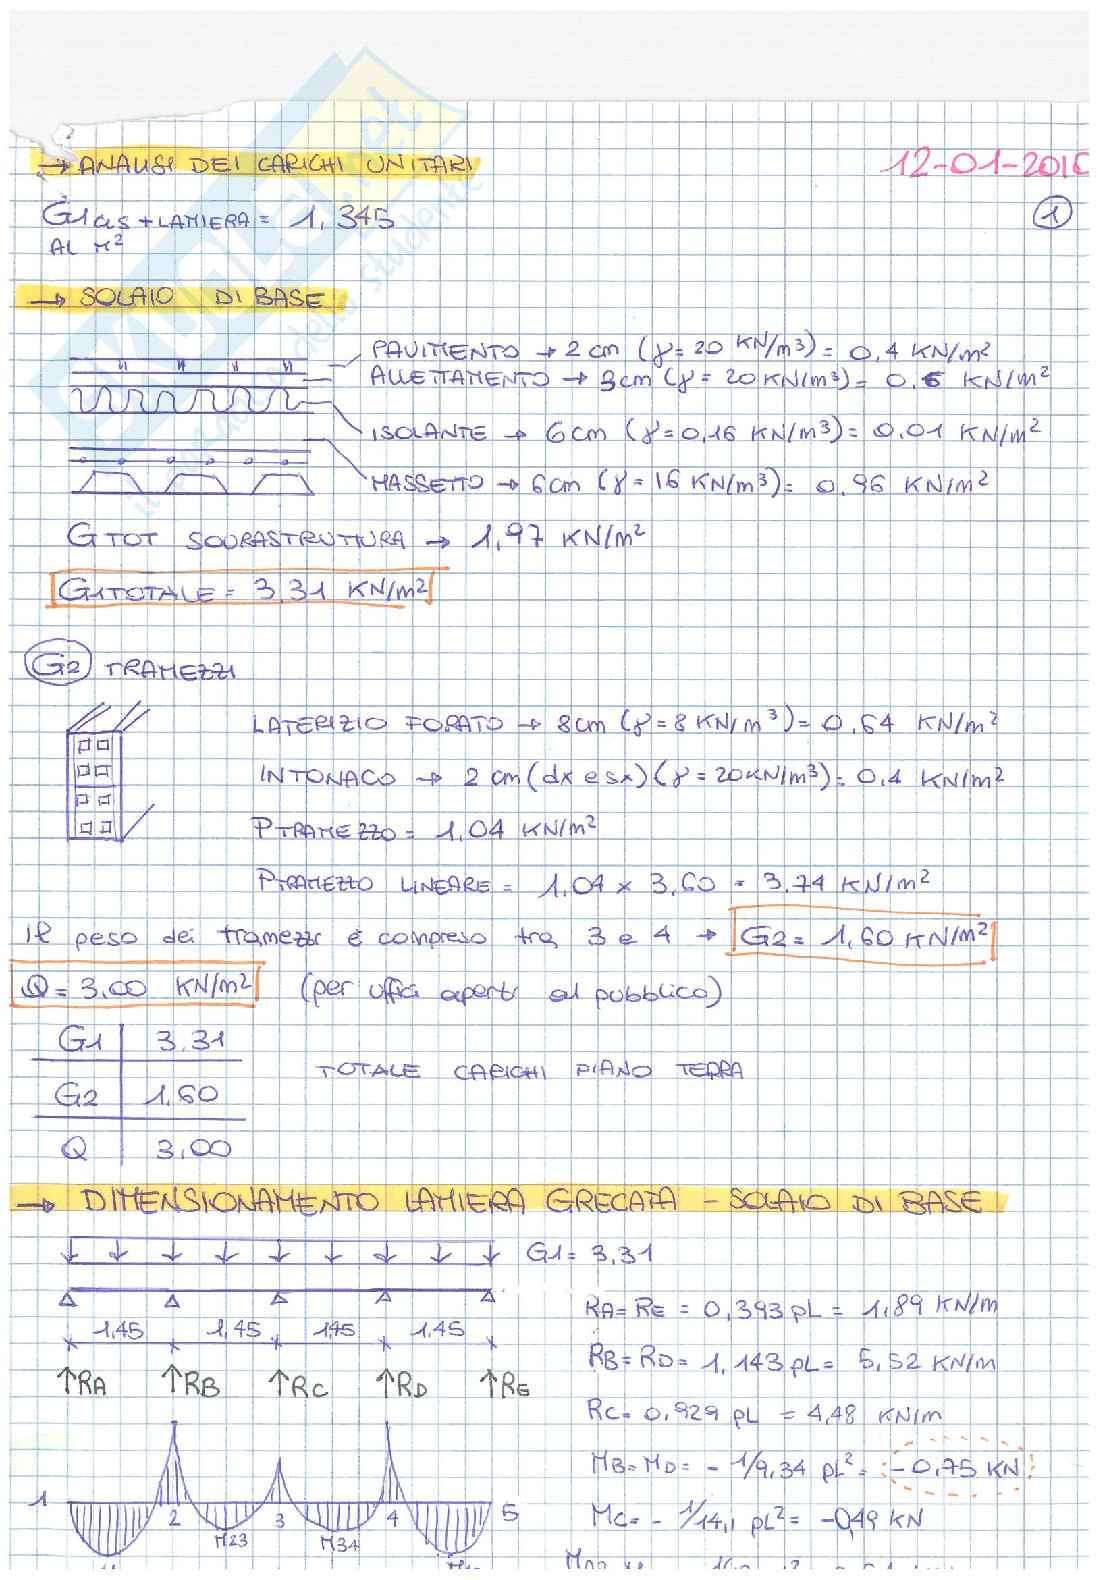 → ANALISI DEI CARICHI UNITARI
12-01-201
1
G1 cls + LAMIERA = 1,345
AL M²
→ SOLAIO DI BASE
PAVIMENTO → 2 cm (γ = 20 KN/m³) = 0,4 KN/m²
ALLETTAMENTO → 3cm (γ = 20 KN/m³) = 0,6 KN/m²
ISOLANTE → 6cm (γ = 0,16 KN/m³) = 0.01 KN/m²
MASSETTO → 6cm (γ = 16 KN/m³) = 0.96 KN/m²
G TOT SOVRASTRUTTURA → 1,97 KN/m²
G1 TOTALE = 3,31 KN/m²
G2 TRAMEZZI
LATERIZIO FORATO → 8cm (γ = 8 KN/m³) = 0,64 KN/m²
INTONACO → 2 cm (dx e sx) (γ = 20KN/m³) = 0,4 KN/m²
P TRAMEZZO = 1,04 KN/m²
P TRAMEZZO LINEARE = 1,04 x 3,60 = 3,74 KN/m²
Il peso dei tramezzi è compreso tra 3 e 4 → G2 = 1,60 KN/m²
Q = 3,00 KN/m² (per uffici aperti al pubblico)
G1 3,31
TOTALE CARICHI PIANO TERRA
G2 1,60
Q 3,00
→ DIMENSIONAMENTO LAMIERA GRECATA - SOLAIO DI BASE
G1 = 3,31
RA = RE = 0,393 pL = 1,89 KN/m
1,45 1,45 1,45 1,45
RB = RD = 1,143 pL = 5,52 KN/m
↑RA ↑RB ↑RC ↑RD ↑RE
RC = 0,929 pL = 4,48 KN/m
MB = MD = - 1/9,34 pL² = -0,75 KN
1 2 3 4 5
MC = - 1/14,1 pL² = -0,49 KN
M23 M34